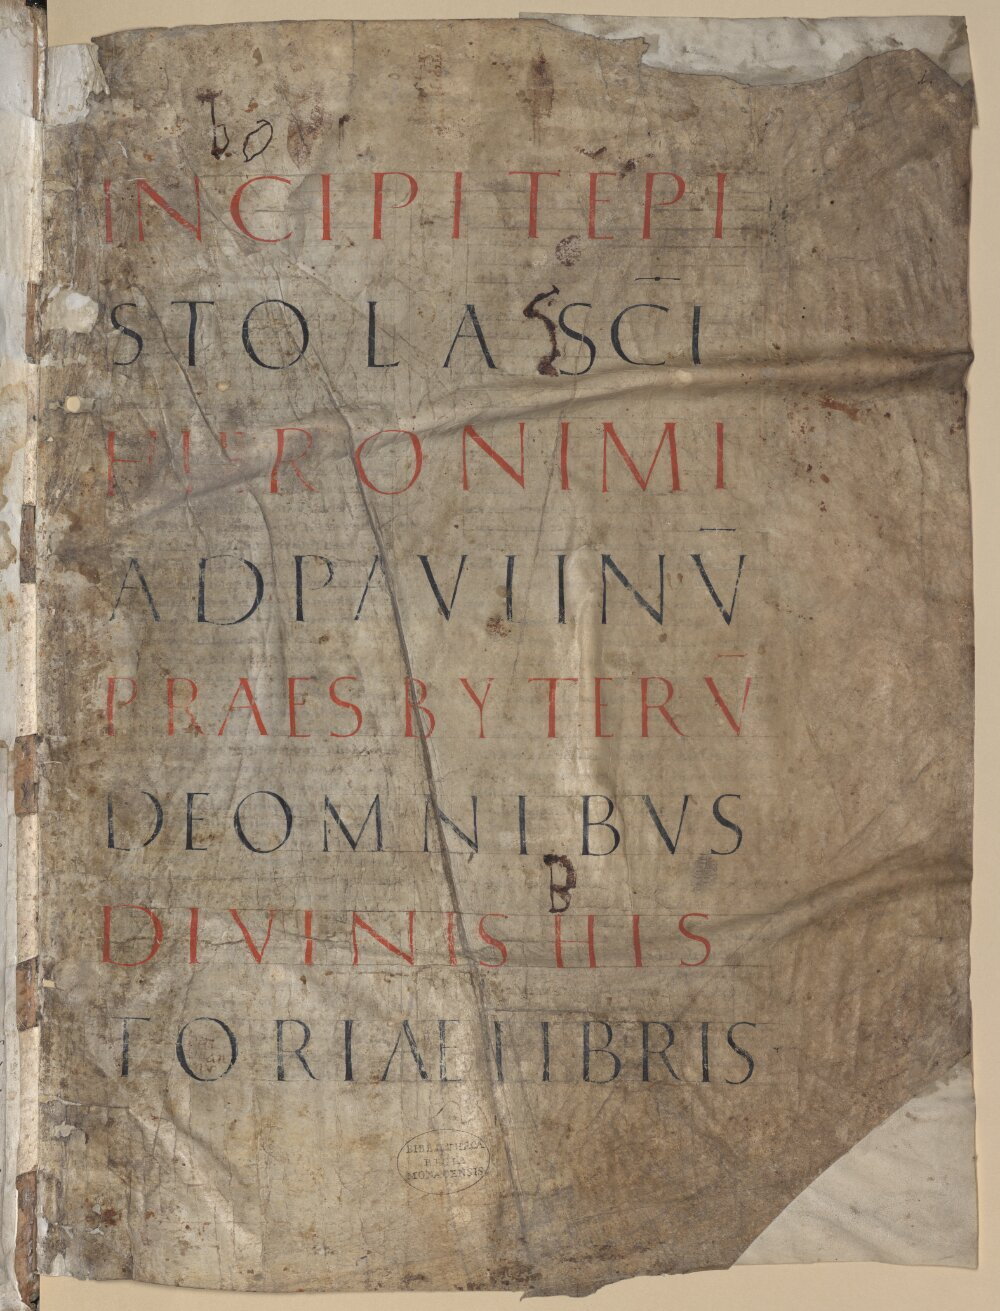 bo
INCIPITEPI
STOLA SC̄I
HIERONIMI
ADPAVLINV̄
PRAESBYTERV̄
DEOMNIBVS
B
DIVINISHIS
TORIAELIBRIS
BIBLIOTHECA
REGIA
MONACENSIS